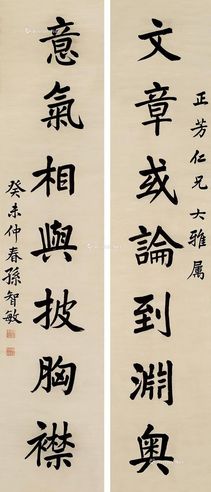 正芳仁兄大雅属
文章或論到淵奥
意氣相與披胸襟
癸未仲春孫智敏